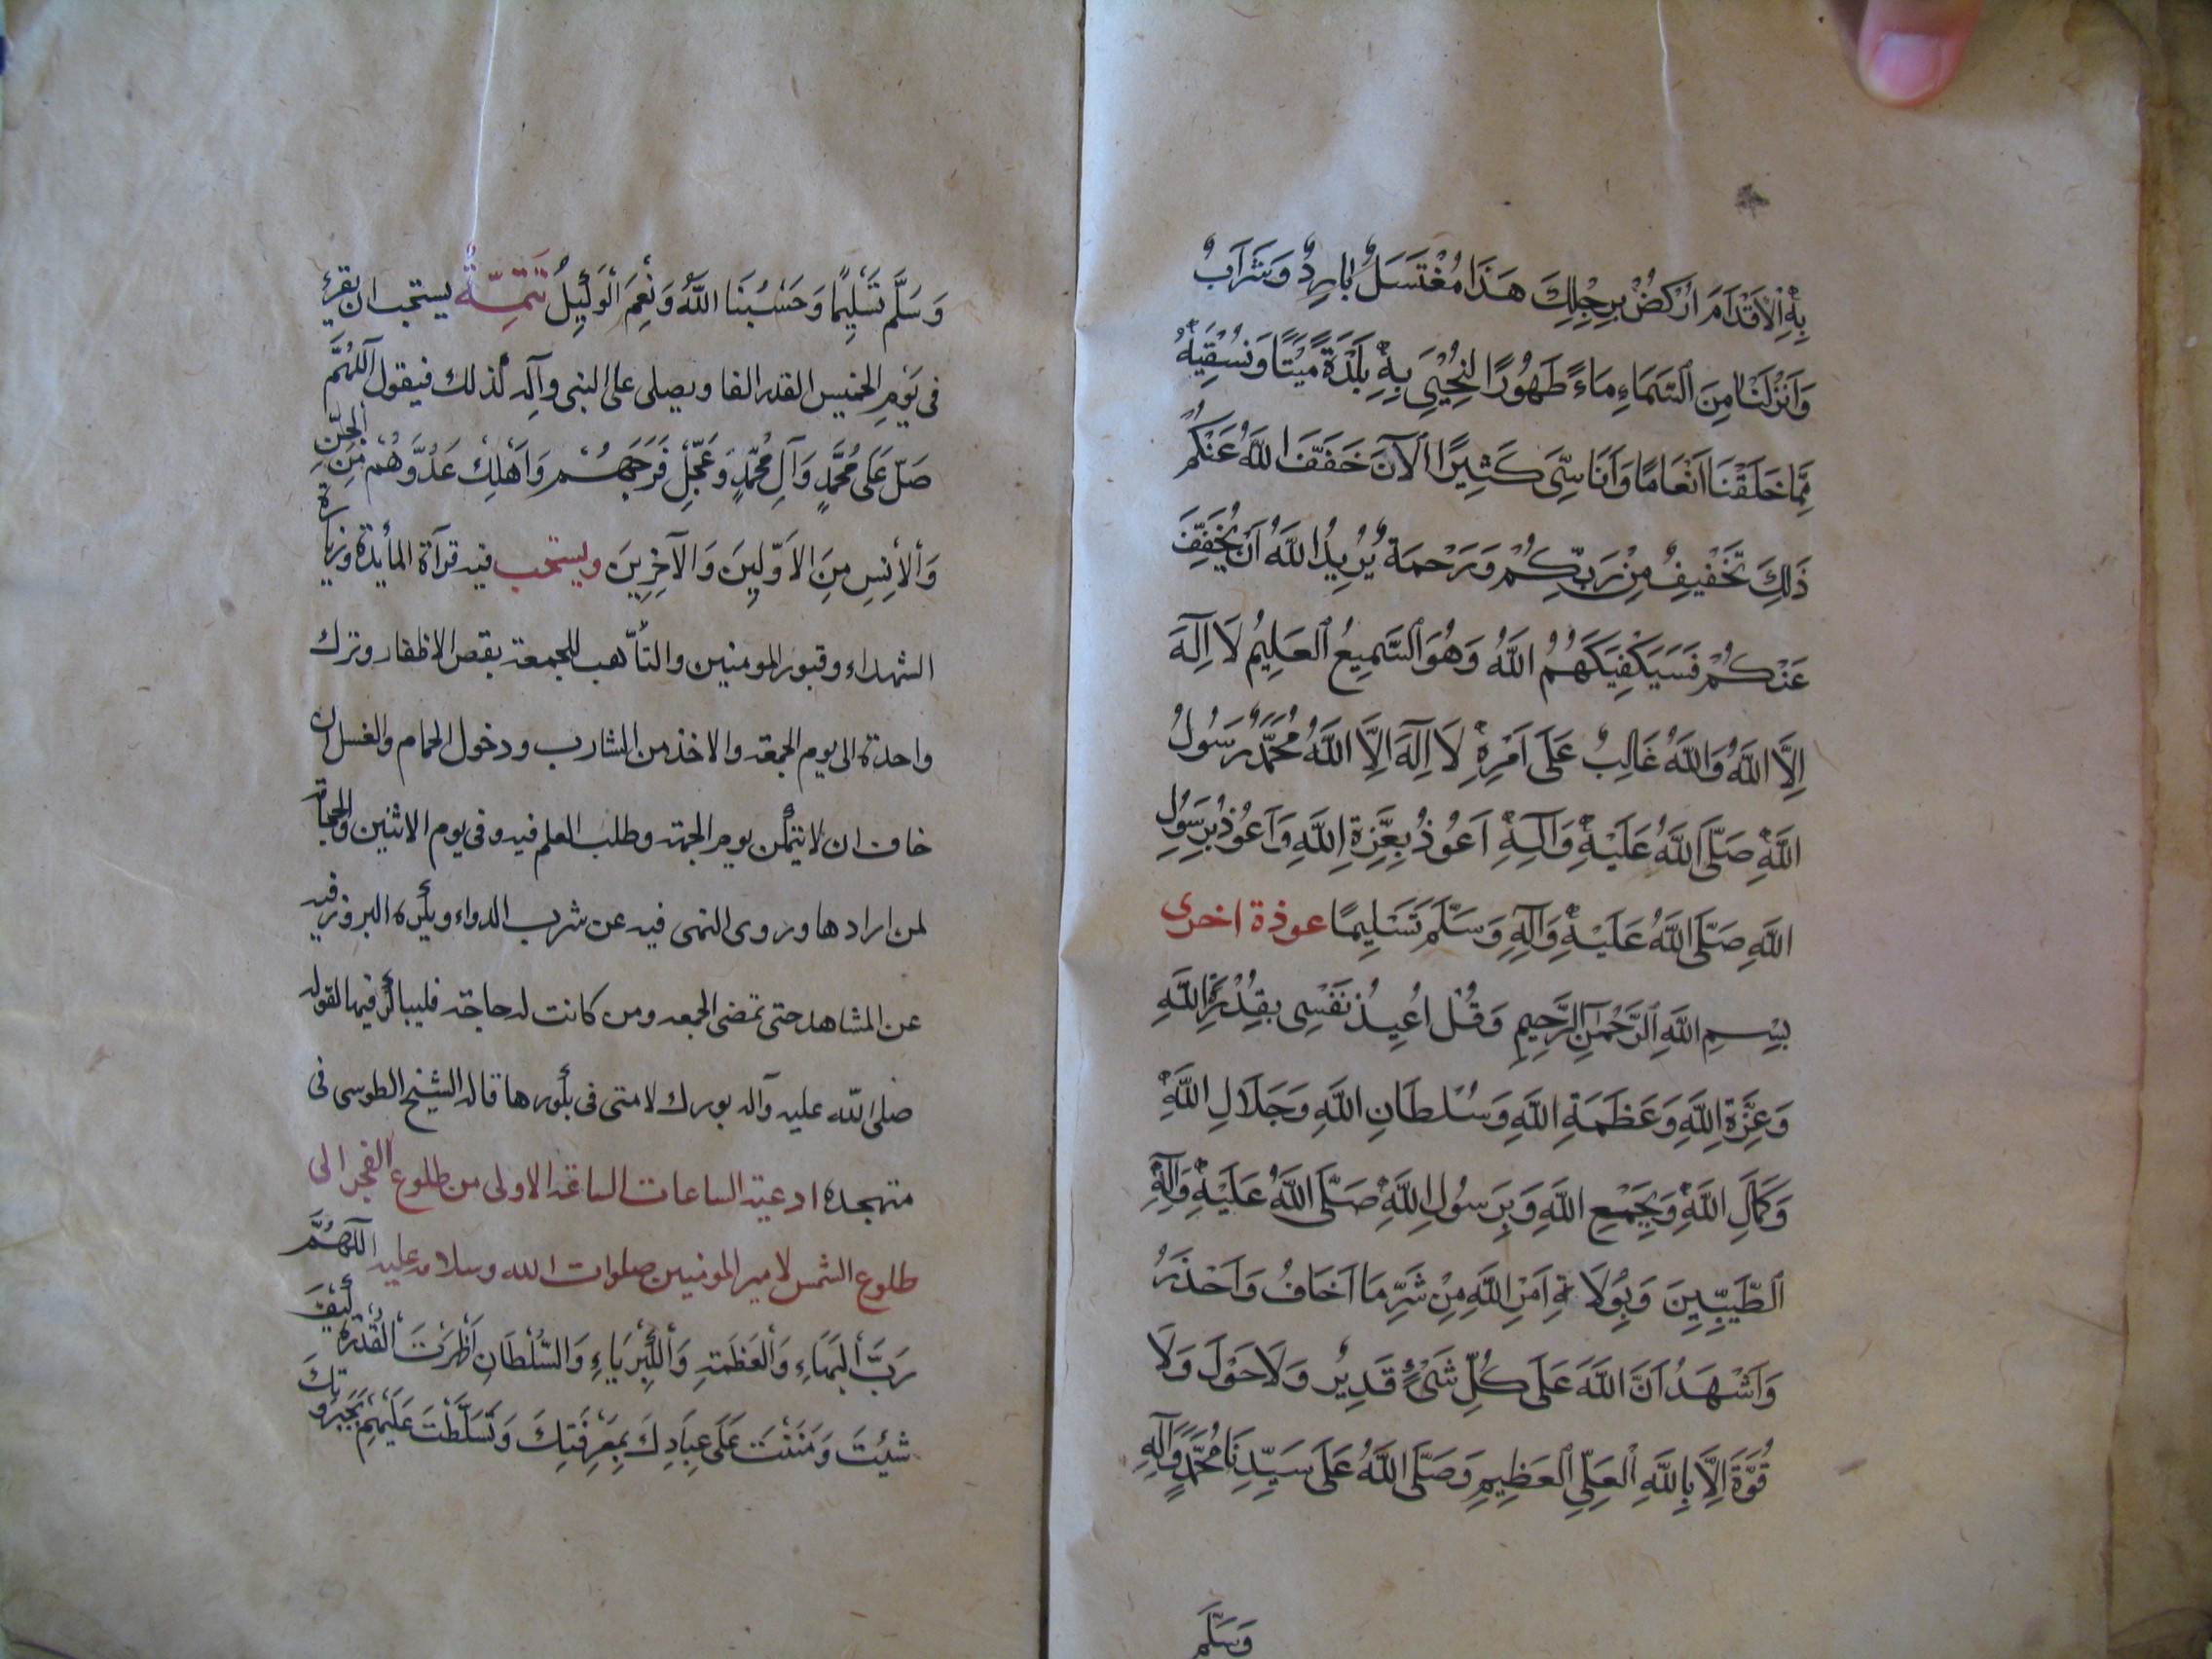 بِهِ الْاَقْدَامَ اُرْكُضْ بِرِجْلِكَ هَذَا مُغْتَسَلٌ بَارِدٌ وَشَرَابٌ
وَاَنْزَلْنَا مِنَ السَّمَاءِ مَاءً طَهُورًا لِنُحْيِيَ بِهِ بَلْدَةً مَيْتًا وَنُسْقِيَهُ
مِمَّا خَلَقْنَا اَنْعَامًا وَاَنَاسِيَّ كَثِيرًا اَلْآنَ خَفَّفَ اللَّهُ عَنْكُمْ
ذَلِكَ تَخْفِيفٌ مِنْ رَبِّكُمْ وَرَحْمَةٌ يُرِيدُ اللَّهُ اَنْ يُخَفِّفَ
عَنْكُمْ فَسَيَكْفِيكَهُمُ اللَّهُ وَهُوَ السَّمِيعُ الْعَلِيمُ لَا اِلَهَ
اِلَّا اللَّهُ وَاللَّهُ غَالِبٌ عَلَى اَمْرِهِ لَا اِلَهَ اِلَّا اللَّهُ مُحَمَّدٌ رَسُولُ
اللَّهِ صَلَّى اللَّهُ عَلَيْهِ وَآلِهِ اَعُوذُ بِعِزَّةِ اللَّهِ وَاَعُوذُ بِرَسُولِ
اللَّهِ صَلَّى اللَّهُ عَلَيْهِ وَآلِهِ وَسَلَّمَ تَسْلِيمًا عوذة اخرى
بِسْمِ اللَّهِ الرَّحْمَنِ الرَّحِيمِ وَقُلْ اُعِيذُ نَفْسِى بِقُدْرَةِ اللَّهِ
وَعِزَّةِ اللَّهِ وَعَظَمَةِ اللَّهِ وَسُلْطَانِ اللَّهِ وَجَلَالِ اللَّهِ
وَكَمَالِ اللَّهِ وَبِجَمْعِ اللَّهِ وَبِرَسُولِ اللَّهِ صَلَّى اللَّهُ عَلَيْهِ وَآلِهِ
الطَّيِّبِينَ وَبِوُلَاةِ اَمْرِ اللَّهِ مِنْ شَرِّ مَا اَخَافُ وَاَحْذَرُ
وَاَشْهَدُ اَنَّ اللَّهَ عَلَى كُلِّ شَىْءٍ قَدِيرٌ وَلَا حَوْلَ وَلَا
قُوَّةَ اِلَّا بِاللَّهِ الْعَلِىِّ الْعَظِيمِ وَصَلَّى اللَّهُ عَلَى سَيِّدِنَا مُحَمَّدٍ وَآلِهِ
وَسَلَّمَ
وَسَلَّمَ تَسْلِيمًا وَحَسْبُنَا اللَّهُ وَنِعْمَ الْوَكِيلُ تَتِمَّةٌ يستحب ان يقرئ
فى يَوْمِ الخميس القدر الفا ويصلى على النبى وآلِه كذلك فيقول اَللَّهُمَّ
صَلِّ عَلَى مُحَمَّدٍ وَآلِ مُحَمَّدٍ وَعَجِّلْ فَرَجَهُمْ وَاَهْلِكْ عَدُوَّهُمْ مِنَ الْجِنِّ
وَالْاِنْسِ مِنَ الْاَوَّلِينَ وَالْآخِرِينَ ويستحب فيه قرآءة المائدة وزيارة
الشهداء وقبور المومنين والتأهب للجمعة بقص الاظفار وترك
واحدة الى يوم الجمعة والاخذ من الشارب ودخول الحمام والغسل ان
خاف ان لا يتمكن يوم الجمعة وطلب العلم فيه وفى يوم الاثنين والحجامة
لمن ارادها وروى النهى فيه عن شرب الدواء ويكره البروز فيه
عن المشاهد حتى تمضى الجمعه ومن كانت له حاجة فليباكر فيها لقوله
صلى الله عليه وآله بورك لامتى فى بكورها قال الشيخ الطوسى فى
متهجده ادعية الساعات الساعة الاولى من طلوع الفجر الى
طلوع الشمس لامير المومنين صلوات الله وسلامه عليه اَللَّهُمَّ
رَبَّ الْبَهَاءِ وَالْعَظَمَةِ وَالْكِبْرِيَاءِ وَالسُّلْطَانِ اَظْهَرْتَ الْقُدْرَةَ كَيْفَ
شِئْتَ وَمَنَنْتَ عَلَى عِبَادِكَ بِمَعْرِفَتِكَ وَتَسَلَّطْتَ عَلَيْهِمْ بِجَبَرُوتِكَ